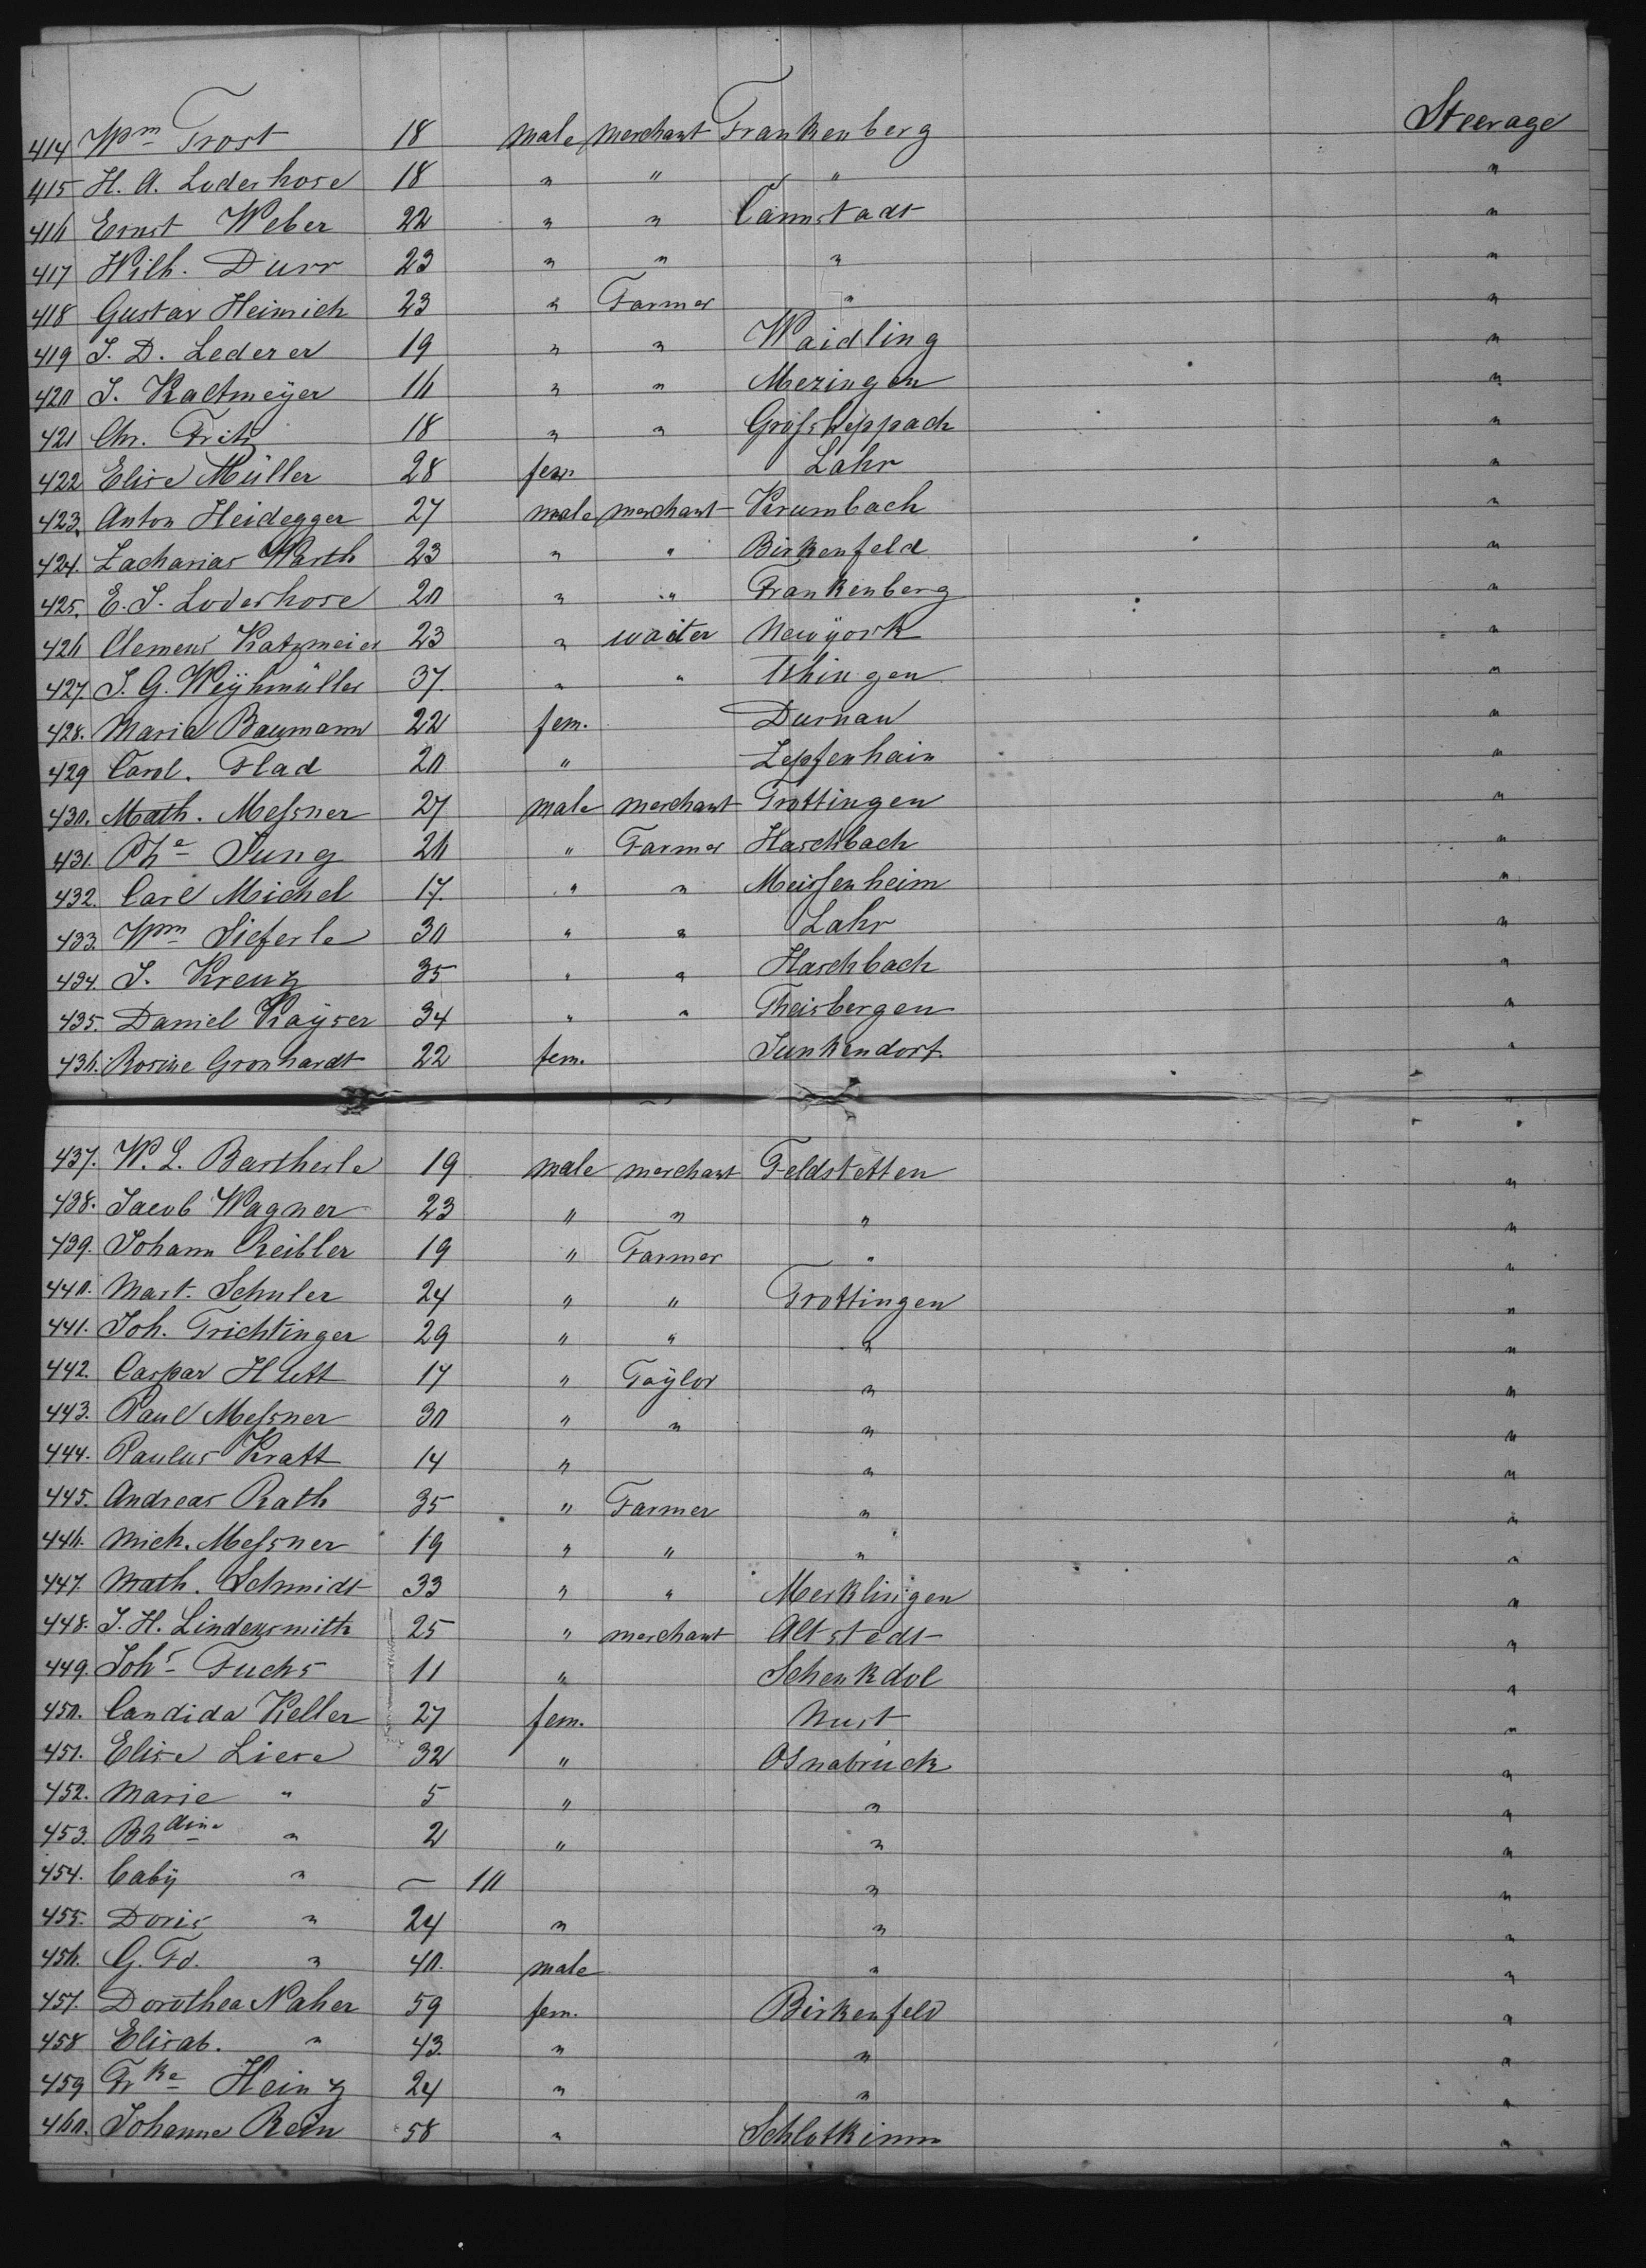 414 Wm Trost 18 male merchant Frankenberg Steerage
415 H. A. Loderhose 18 " " " "
416 Ernst Weber 22 " " Cannstadt "
417 Wilh. Durr 23 " " " "
418 Gustav Heinrich 23 " Farmer " "
419 J. D. Lederer 19 " " Waidling "
420 J. Kaltmeÿer 16 " " Mezingen "
421 Chr. Fritz 18 " " Grossheppach "
422 Elise Müller 28 fem. Lahr "
423. Anton Heidegger 27 male merchant Krumbach "
424. Zacharias Warth 23 " " Birkenfeld "
425. E. J. Loderhose 20 " " Frankenberg "
426 Clemens Katzmeier 23 " waiter Newÿork "
427. J. G. Weÿhmüller 37. " " "
428. Maria Baumann 22 fem. Durnau "
429 Carol. Flad 20 " Zepfenhain "
430. Math. Messner 27 male merchant Trottingen "
431. Phe Jung 26 " Farmer Haschbach "
432. Carl Michel 17. " " Meissenheim "
433. Wm Sieferle 30 " " Lahr "
434. J. Kreuz 35 " " Haschbach "
435. Daniel Kaÿser 34 " " Theisbergen "
436. Rosine Gronhardt 22 fem. Junkendorf "
437. W. L. Bartherle 19 male merchant Feldstetten "
438. Jacob Wagner 23 " " " "
439. Johann Reibler 19 " Farmer " "
440. Mart. Schuler 24 " " Trottingen "
441. Joh. Trichtinger 29 " " " "
442. Caspar Hutt 17 " Taÿlor " "
443. Paul Messner 30 " " " "
444. Paulus Kratt 14 " " "
445. Andreas Rath 35 " Farmer " "
446. Mich. Messner 19 " " " "
447. Math. Schmidt 33 " " Merklingen "
448. J. H. Lindensmith 25 " merchant Altstedt "
449. Johs Fuchs 11 " Schenkdol "
450. Candida Keller 27 fem. Nust "
451. Elise Liese 32 " Osnabrück "
452. Marie " 5 " " "
453. " 2 " " "
454. Baby " — 10 " "
455. Doris " 24 " " "
456. G. Fd. " 40. male " "
457. Dorothea Naher 59 fem. Birkenfeld "
458 Elisab. " 43. " " "
459 Frke Heinz 24 " " "
460. Johanne Rein 58 " Schlotkimm "